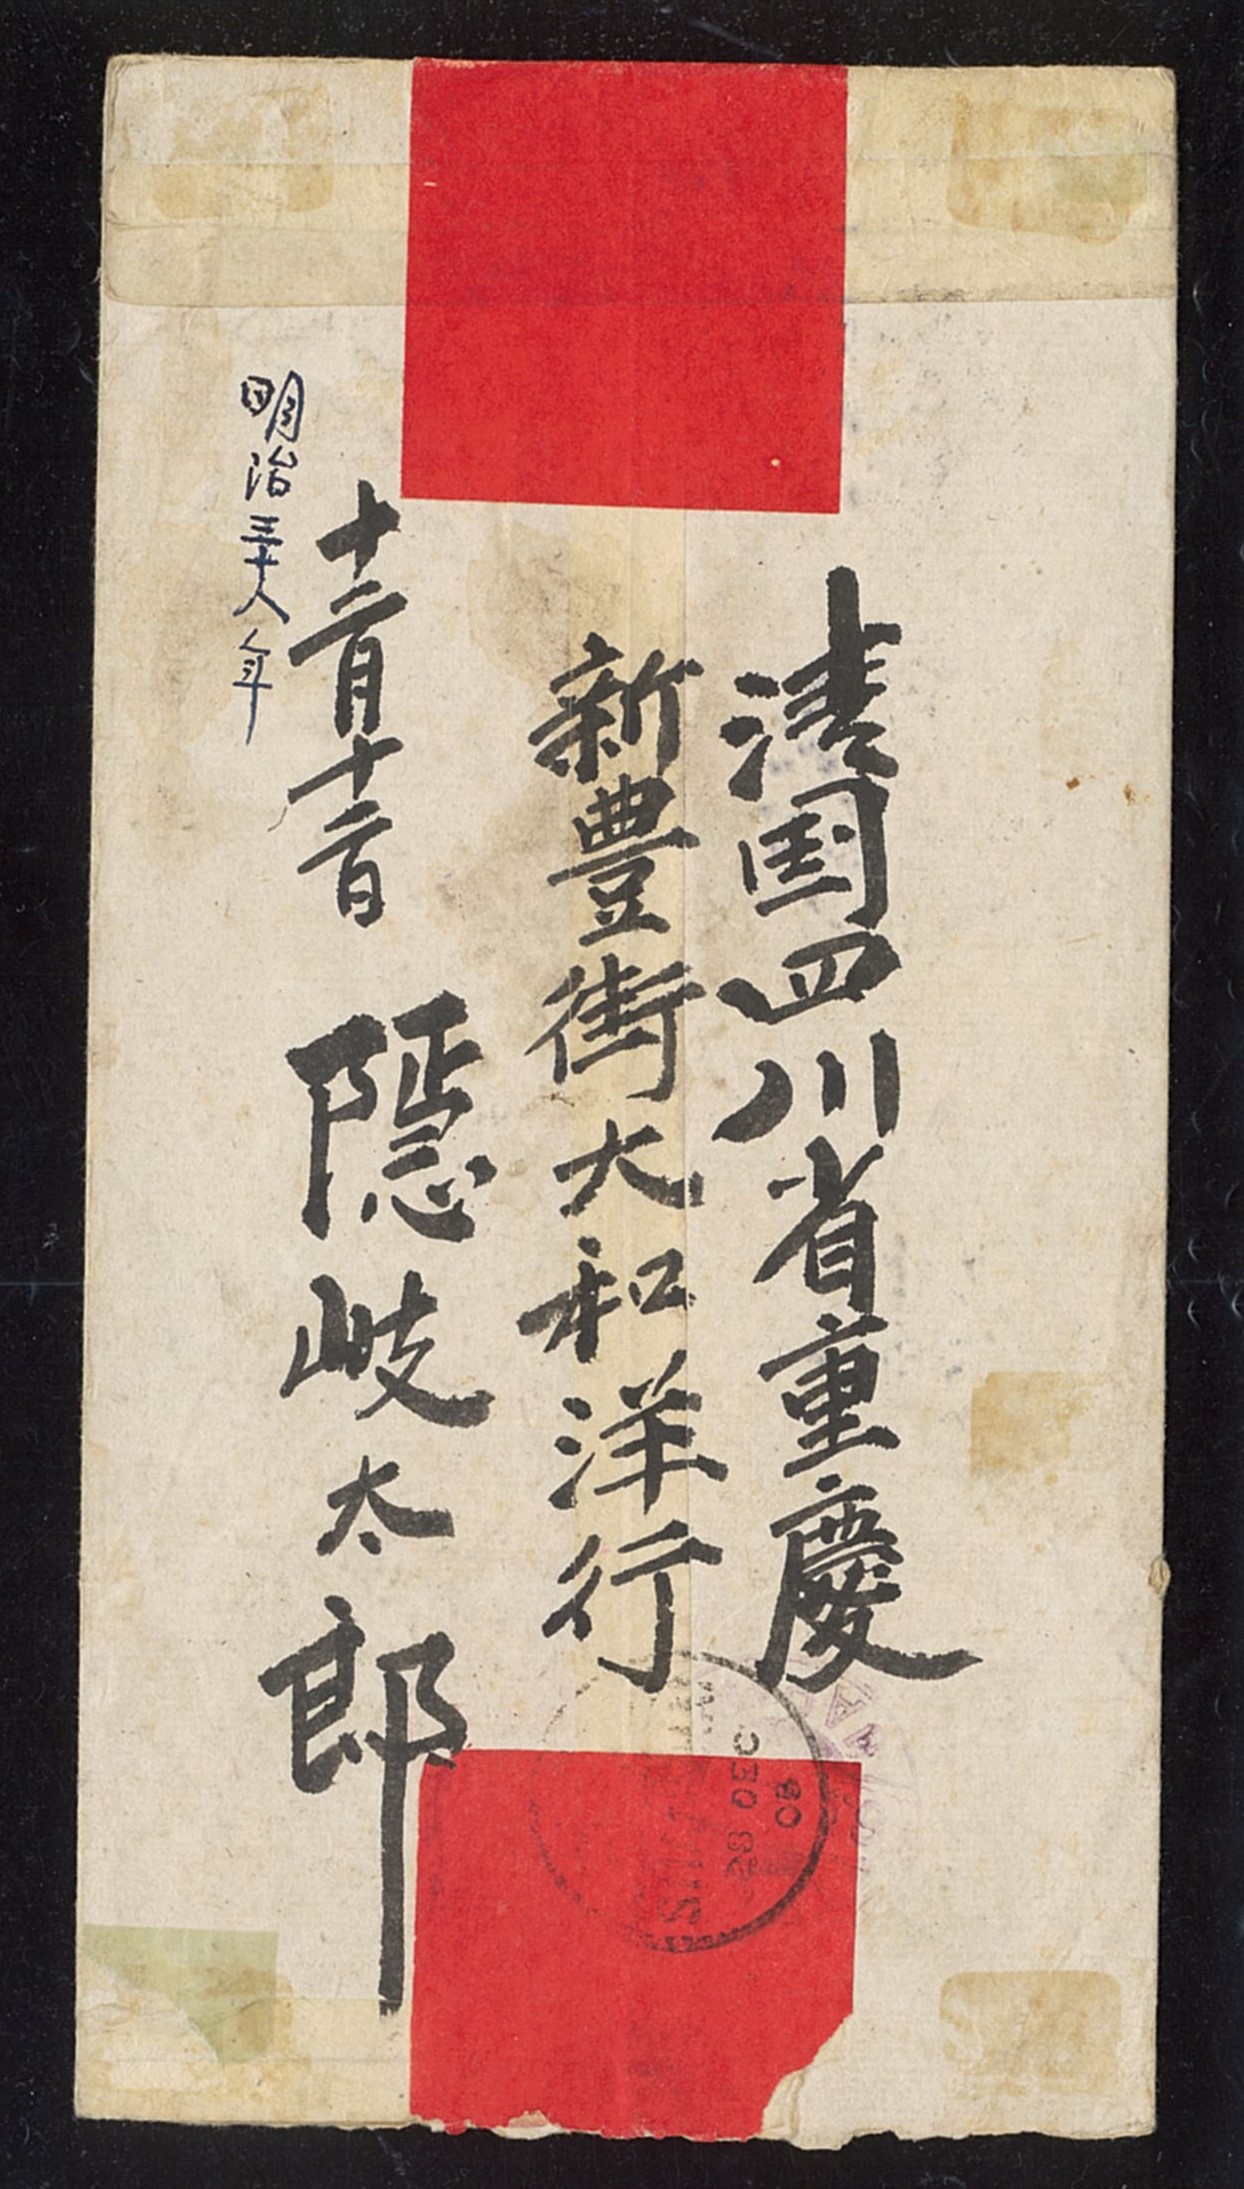 清国四川省重慶
新豊街大和洋行
十二月十二日
隠岐太郎
明治三十八年